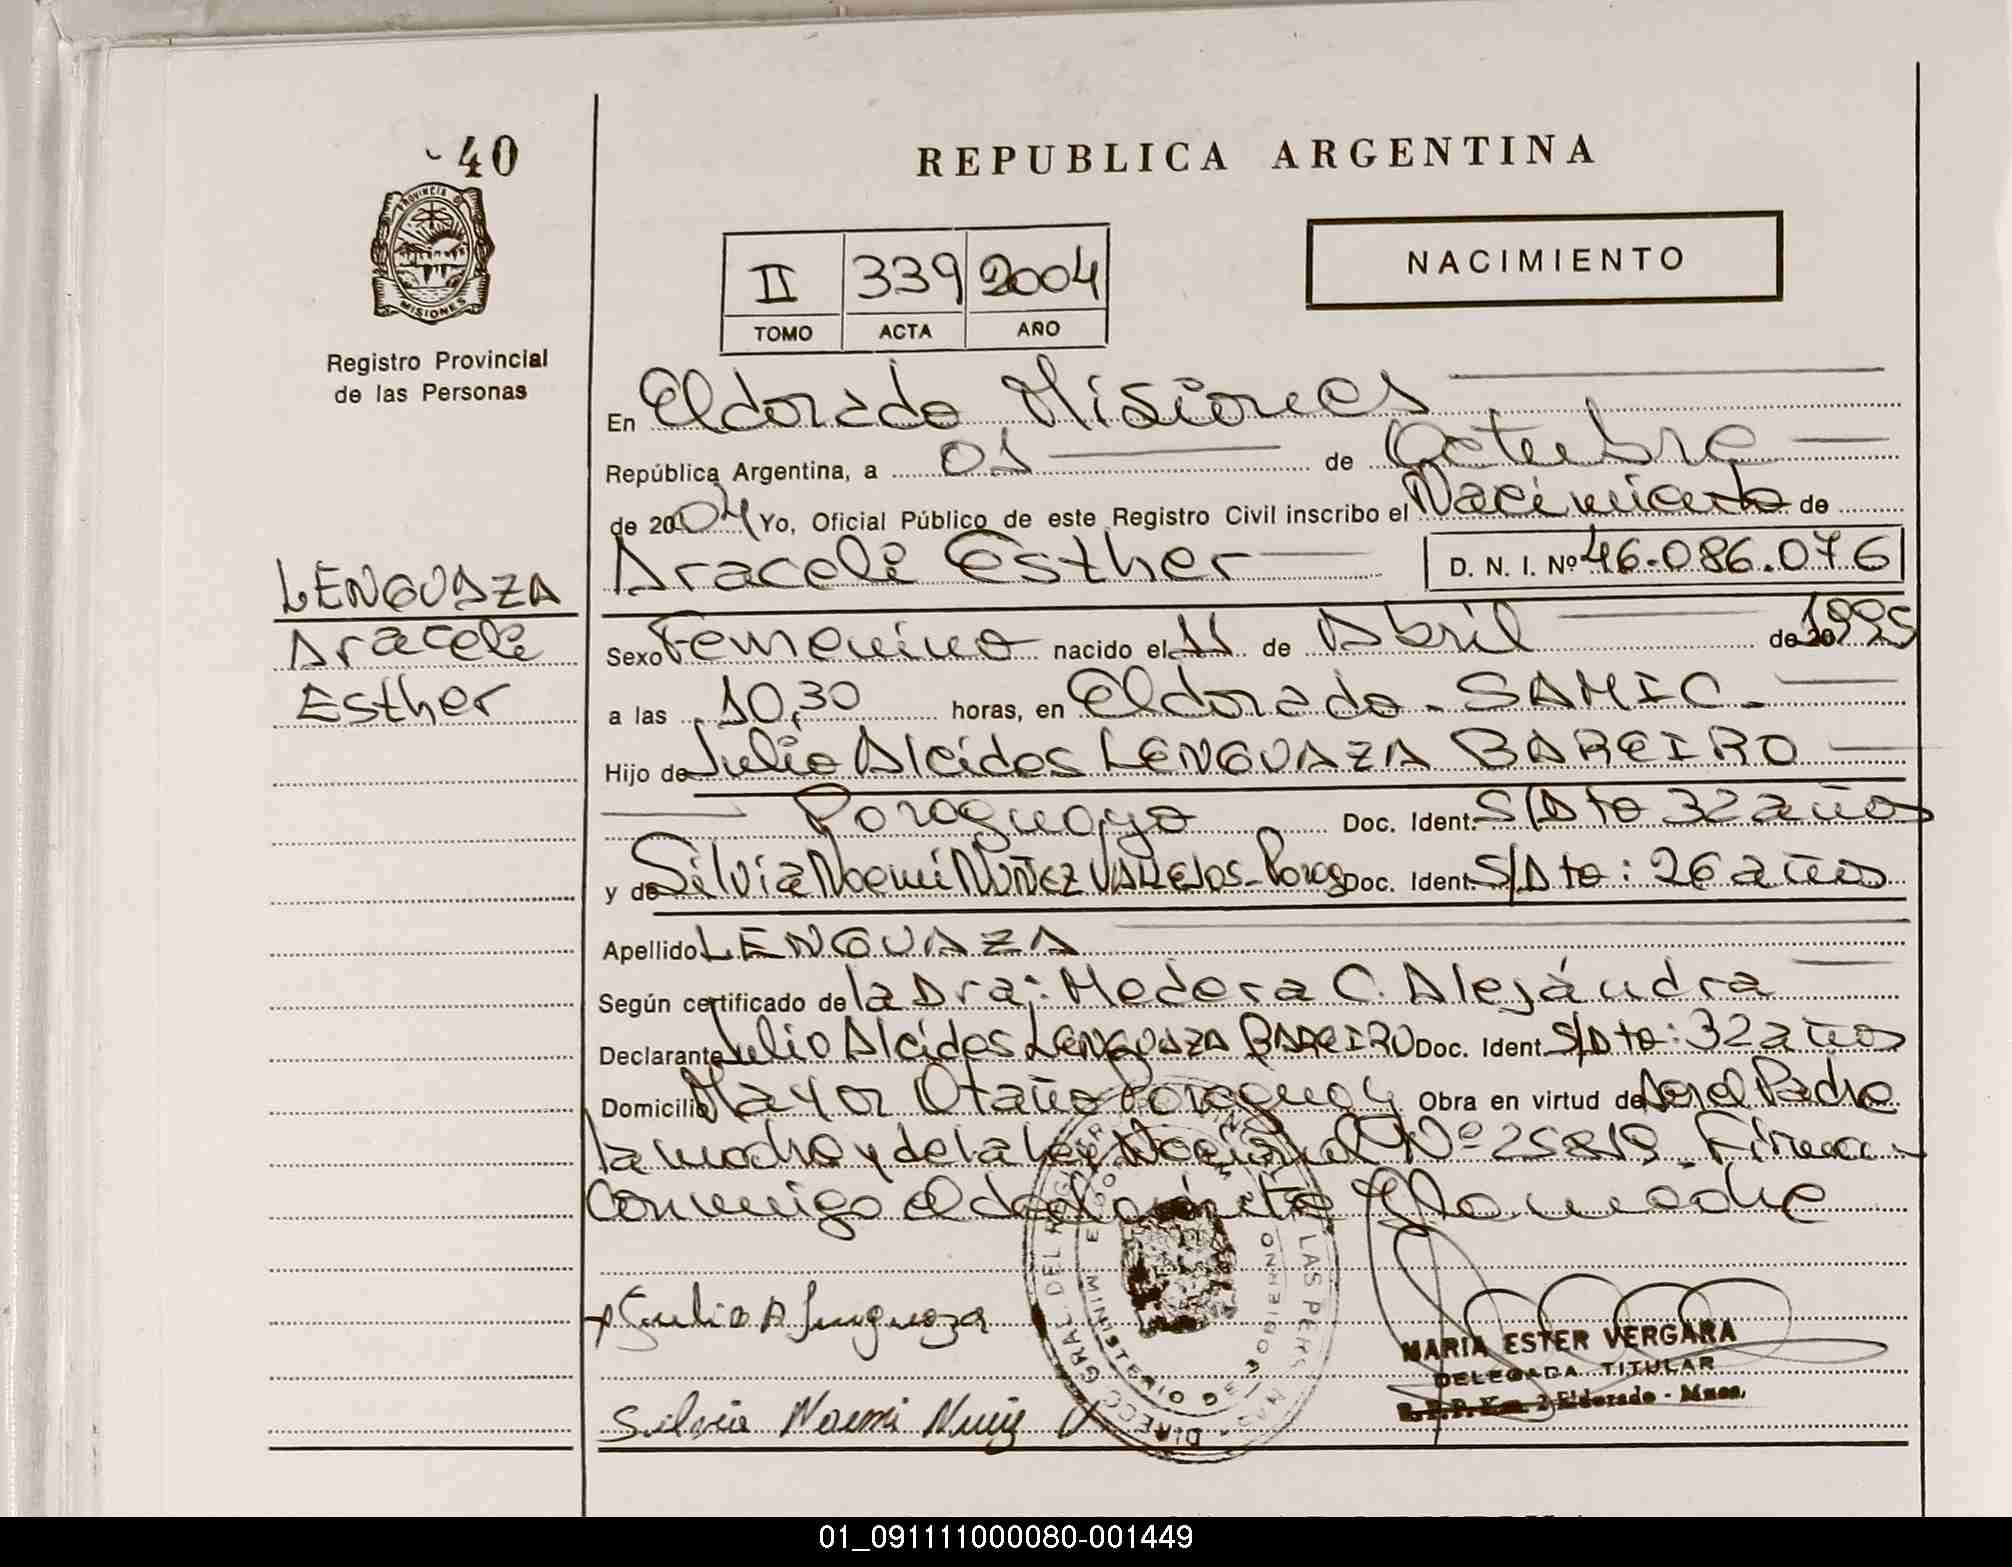 40
PROVINCIA DE
MISIONES
Registro Provincial
de las Personas
REPUBLICA ARGENTINA
II 339 2004
TOMO ACTA AÑO
NACIMIENTO
En Eldorado Misiones
República Argentina, a 01 de Octubre
de 2004 Yo, Oficial Público de este Registro Civil inscribo el Nacimiento de
Araceli Esther D. N. I. Nº 46.086.076
LENGUAZA
Araceli
Esther
Sexo Femenino nacido el 11 de Abril de 20 1995
a las 10,30 horas, en Eldorado - SAMIC.
Hijo de Julio Alcides LENGUAZA BAREIRO
Paraguayo Doc. Ident. S/Dto 32 años
y de Silvia Noemi NUÑEZ VALLEJOS - Parag Doc. Ident. S/Dto: 26 años
Apellido LENGUAZA
Según certificado de la Dra: Medera C. Alejándra
Declarante Julio Alcides LENGUAZA BAREIRO Doc. Ident. S/Dto: 32 años
Domicilio Mayor Otaño Paraguay Obra en virtud de ser el Padre
la madre y de la Ley Nacional Nº 25819. Firman
conmigo el declarante y la madre
Julio A Lenguaza
Silvia Noemi Nuñez V
DIRECC. GRAL. DEL REGISTRO LAS PERSONAS
MINISTERIO DE GOBIERNO
MARIA ESTER VERGARA
DELEGADA TITULAR
R.P.P. Km. 2 Eldorado - Mnes.
01_091111000080-001449